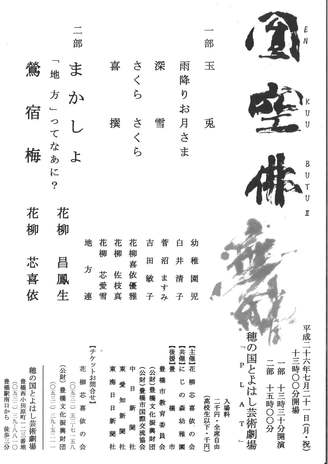 圓空佛
EN KUU BUTU Ⅱ
平成二十六年七月二十一日(月・祝)
十三時〇〇分開場
一部 十三時三十分開演
二部 十五時〇〇分
穂の国とよはし芸術劇場
「PLAT」
入場料
二千円・全席自由
(高校生以下・千円)
一部 玉兎
雨降りお月さま
深雪
さくら さくら
喜撰
幼稚園児
白井 清子
菅沼 ますみ
吉田 敏子
花柳 喜依優雅
花柳 佐枝真
花柳 芯愛雪
地方連
二部 まかしょ
「地方」ってなあに?
鶯宿梅
花柳 昌鳳生
花柳 芯喜依
【主催】花柳芯喜依の会
【共催】にじの森幼稚園
【後援】豊橋市
豊橋市教育委員会
(公財)豊橋市国際交流協会
(公財)豊橋文化振興財団
中日新聞社
東愛知新聞社
東海日日新聞社
【チケットお問合せ】
花柳芯喜依の会
(公財)豊橋文化振興財団
穂の国とよはし芸術劇場
豊橋駅南口から 徒歩三分